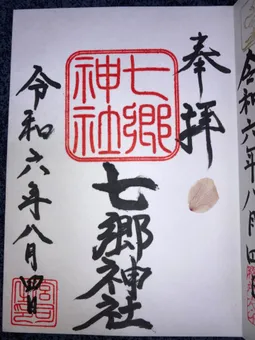 奉拝
七郷神社
七郷神社
令和六年八月四日
令和六年八月四日